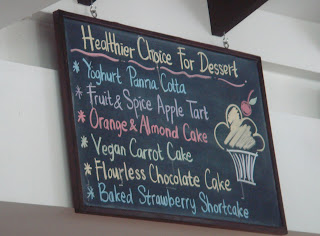 Healthier Choice For Dessert
* Yoghurt Panna Cotta
* Fruit & Spice Apple Tart
* Orange & Almond Cake
* Vegan Carrot Cake
* Flourless Chocolate Cake
* Baked Strawberry Shortcake